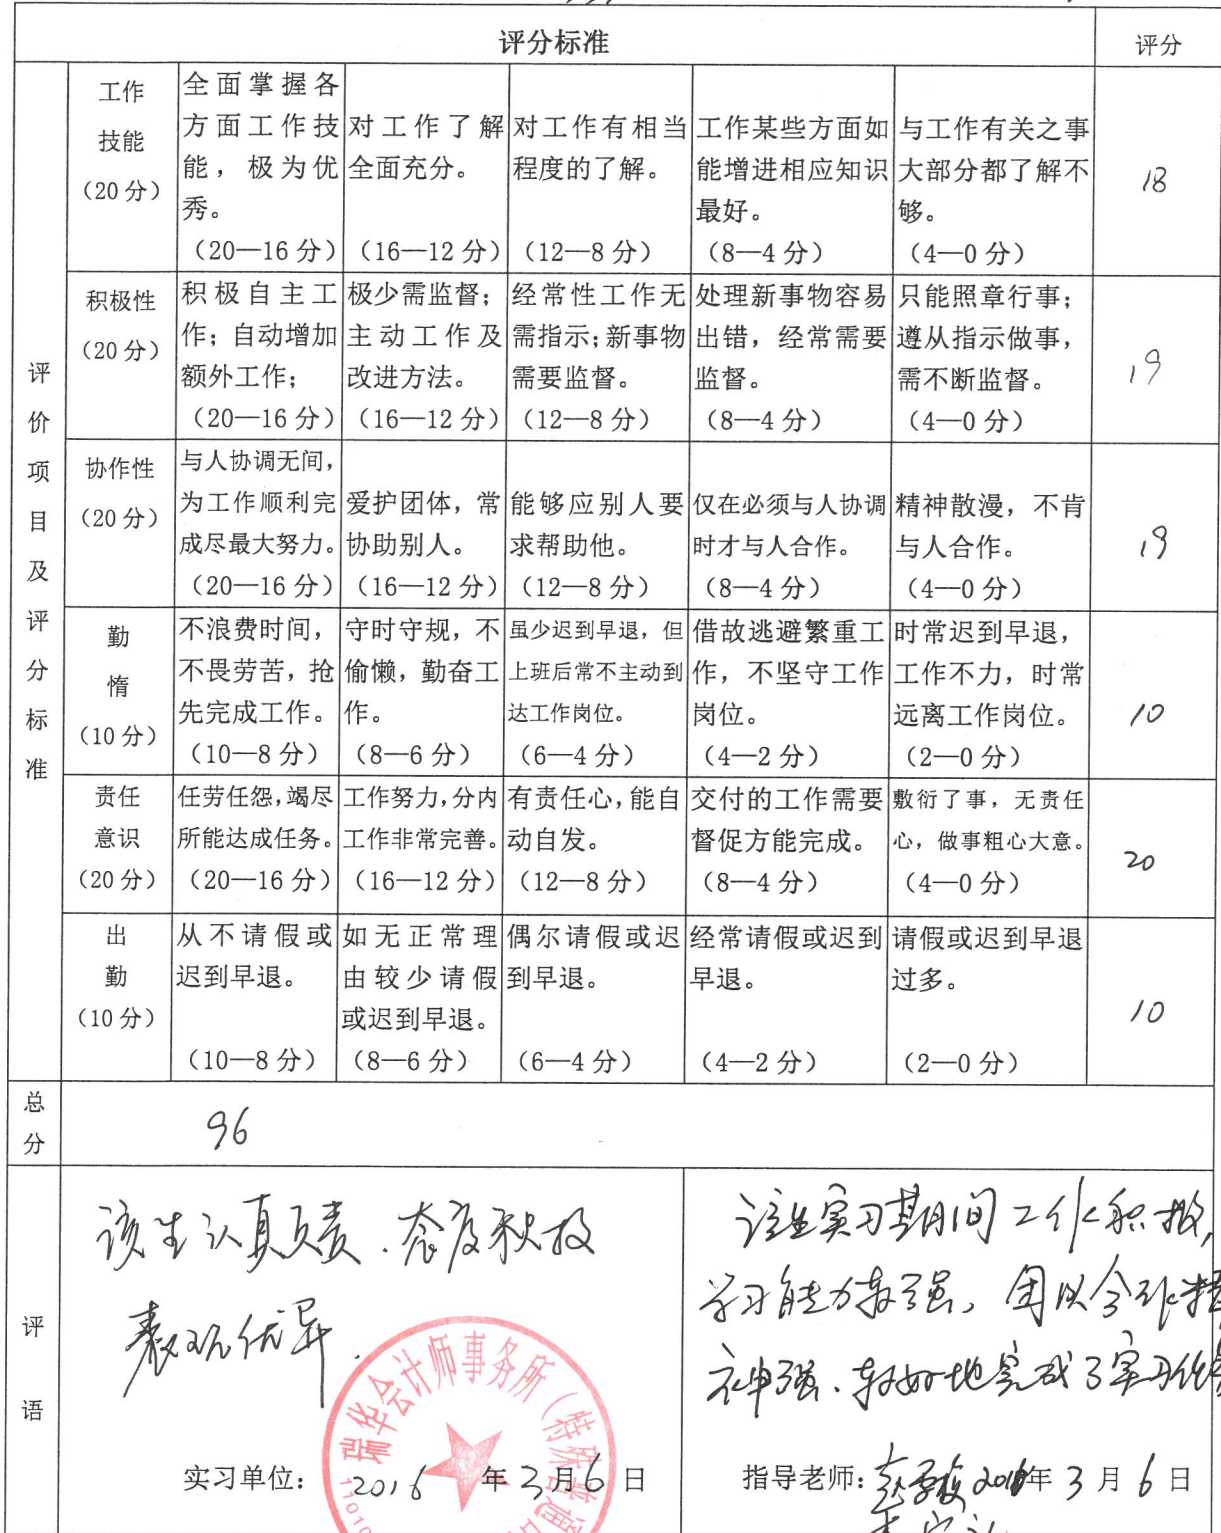 评分标准 评分
评价项目及评分标准
工作技能（20分）
全面掌握各方面工作技能，极为优秀。（20—16分）
对工作了解全面充分。（16—12分）
对工作有相当程度的了解。（12—8分）
工作某些方面如能增进相应知识最好。（8—4分）
与工作有关之事大部分都了解不够。（4—0分）
18
积极性（20分）
积极自主工作；自动增加额外工作；（20—16分）
极少需监督；主动工作及改进方法。（16—12分）
经常性工作无需指示；新事物需要监督。（12—8分）
处理新事物容易出错，经常需要监督。（8—4分）
只能照章行事；遵从指示做事，需不断监督。（4—0分）
19
协作性（20分）
与人协调无间，为工作顺利完成尽最大努力。（20—16分）
爱护团体，常协助别人。（16—12分）
能够应别人要求帮助他。（12—8分）
仅在必须与人协调时才与人合作。（8—4分）
精神散漫，不肯与人合作。（4—0分）
19
勤惰（10分）
不浪费时间，不畏劳苦，抢先完成工作。（10—8分）
守时守规，不偷懒，勤奋工作。（8—6分）
虽少迟到早退，但上班后常不主动到达工作岗位。（6—4分）
借故逃避繁重工作，不坚守工作岗位。（4—2分）
时常迟到早退，工作不力，时常远离工作岗位。（2—0分）
10
责任意识（20分）
任劳任怨，竭尽所能达成任务。（20—16分）
工作努力，分内工作非常完善。（16—12分）
有责任心，能自动自发。（12—8分）
交付的工作需要督促方能完成。（8—4分）
敷衍了事，无责任心，做事粗心大意。（4—0分）
20
出勤（10分）
从不请假或迟到早退。（10—8分）
如无正常理由较少请假或迟到早退。（8—6分）
偶尔请假或迟到早退。（6—4分）
经常请假或迟到早退。（4—2分）
请假或迟到早退过多。（2—0分）
10
总分 96
评语
该生认真负责、态度积极
表现优异.
瑞华会计师事务所（特殊普通
11010
实习单位： 2016 年3月6日
该生实习期间工作积极,
学习能力较强、团队合作精
神强、较好地完成了实习任务
指导老师： 2016年3月6日